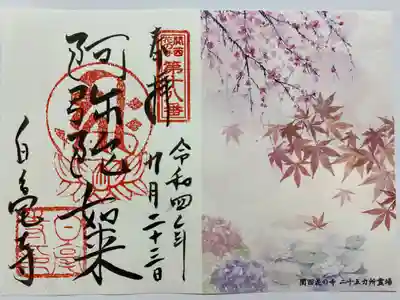 関西花の寺
第十八番
奉拝
令和四年
月二十三日
阿弥陀如来
白毫寺
関西花の寺 二十五カ所霊場